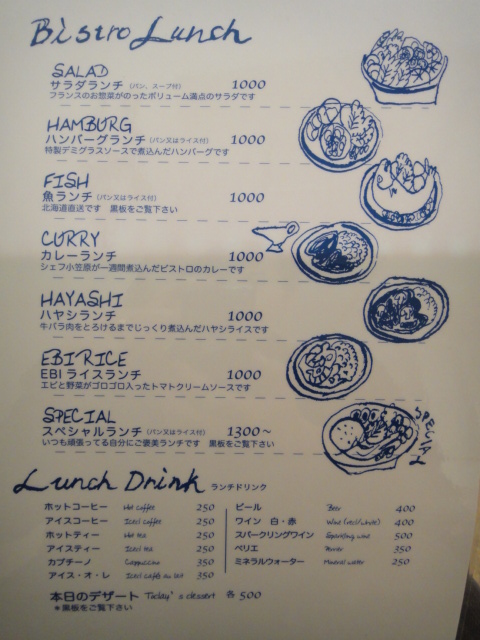 Bistro Lunch
SALAD
サラダランチ (パン、スープ付) 1000
フランスのお惣菜がのったボリューム満点のサラダです
HAMBURG
ハンバーグランチ (パン又はライス付) 1000
特製デミグラスソースで煮込んだハンバーグです
FISH
魚ランチ (パン又はライス付) 1000
北海道直送です 黒板をご覧下さい
CURRY
カレーランチ 1000
シェフ小笠原が一週間煮込んだビストロのカレーです
HAYASHI
ハヤシランチ 1000
牛バラ肉をとろけるまでじっくり煮込んだハヤシライスです
EBI RICE
EBIライスランチ 1000
エビと野菜がゴロゴロ入ったトマトクリームソースです
SPECIAL
スペシャルランチ (パン又はライス付) 1300～
いつも頑張ってる自分にご褒美ランチです 黒板をご覧下さい
SPECIAL
Lunch Drink ランチドリンク
ホットコーヒー Hot coffee 250
アイスコーヒー Iced coffee 250
ホットティー Hot tea 250
アイスティー Iced tea 250
カプチーノ Cappuccino 350
アイス・オ・レ Iced café au lait 350
ビール Beer 400
ワイン 白・赤 Wine (red/white) 400
スパークリングワイン Sparkling wine 500
ペリエ Perrier 350
ミネラルウォーター Mineral water 250
本日のデザート Today's dessert 各500
＊黒板をご覧下さい